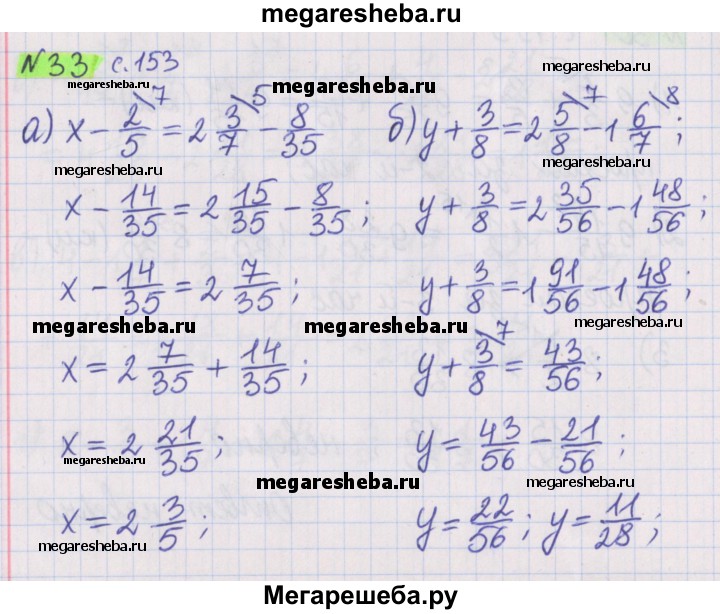 megaresheba.ru
№33 с.153
megaresheba.ru
megaresheba.ru
а) x - 2/5 \7 = 2 3/7 \5 - 8/35
б) y + 3/8 = 2 5/8 \7 - 1 6/7 \8 ;
megaresheba.ru
megaresheba.ru
x - 14/35 = 2 15/35 - 8/35 ;
y + 3/8 = 2 35/56 - 1 48/56 ;
x - 14/35 = 2 7/35 ;
y + 3/8 = 1 91/56 - 1 48/56 ;
megaresheba.ru
megaresheba.ru
megaresheba.ru
x = 2 7/35 + 14/35 ;
y + 3/8 \7 = 43/56 ;
x = 2 21/35 ;
y = 43/56 - 21/56 ;
megaresheba.ru
megaresheba.ru
megaresheba.ru
x = 2 3/5 ;
y = 22/56 ; y = 11/28 ;
megaresheba.ru
megaresheba.ru
Мегарешеба.ру